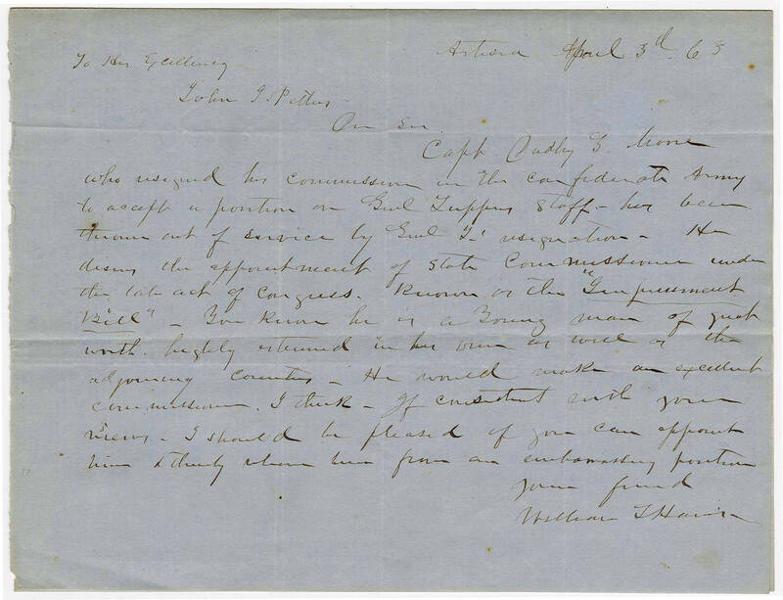 Artesia April 3d. 63
To His Excellency
John J. Pettus
Dr Sir
Capt G. Moore
who resigned his commission in the confederate Army
to accept a position on Genl Tuppers Staff - has been
thrown out of service by Genl T.'s resignation - He
desires the appointment of State Commissioner under
the late act of Congress. Known as the "Impressment
Bill" - You know he is a Young man of great
worth. highly esteemed in his own as well as the
adjoining Counties - He would make an excellent
commissioner. I think - If consistent with your
views - I should be pleased if you can appoint
him & thereby him from an embarrassing position
your friend
William